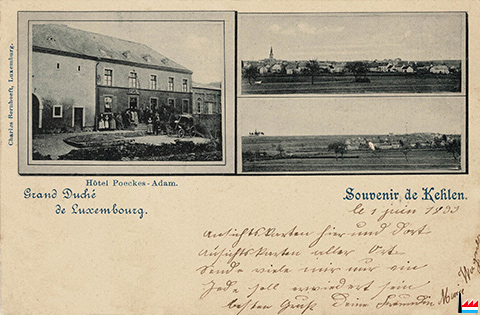 Charles Bernhoeft, Luxembourg.
Hôtel Poeckes-Adam.
Grand Duché
de Luxembourg.
Souvenir de Kehlen.
le 1 juin 1933
Ansichtskarten hier und dort
Ansichtskarten aller Orte
Sende viele mir nur ein
Jede soll erwiedert sein
besten Gruß deine Freundin
Marie